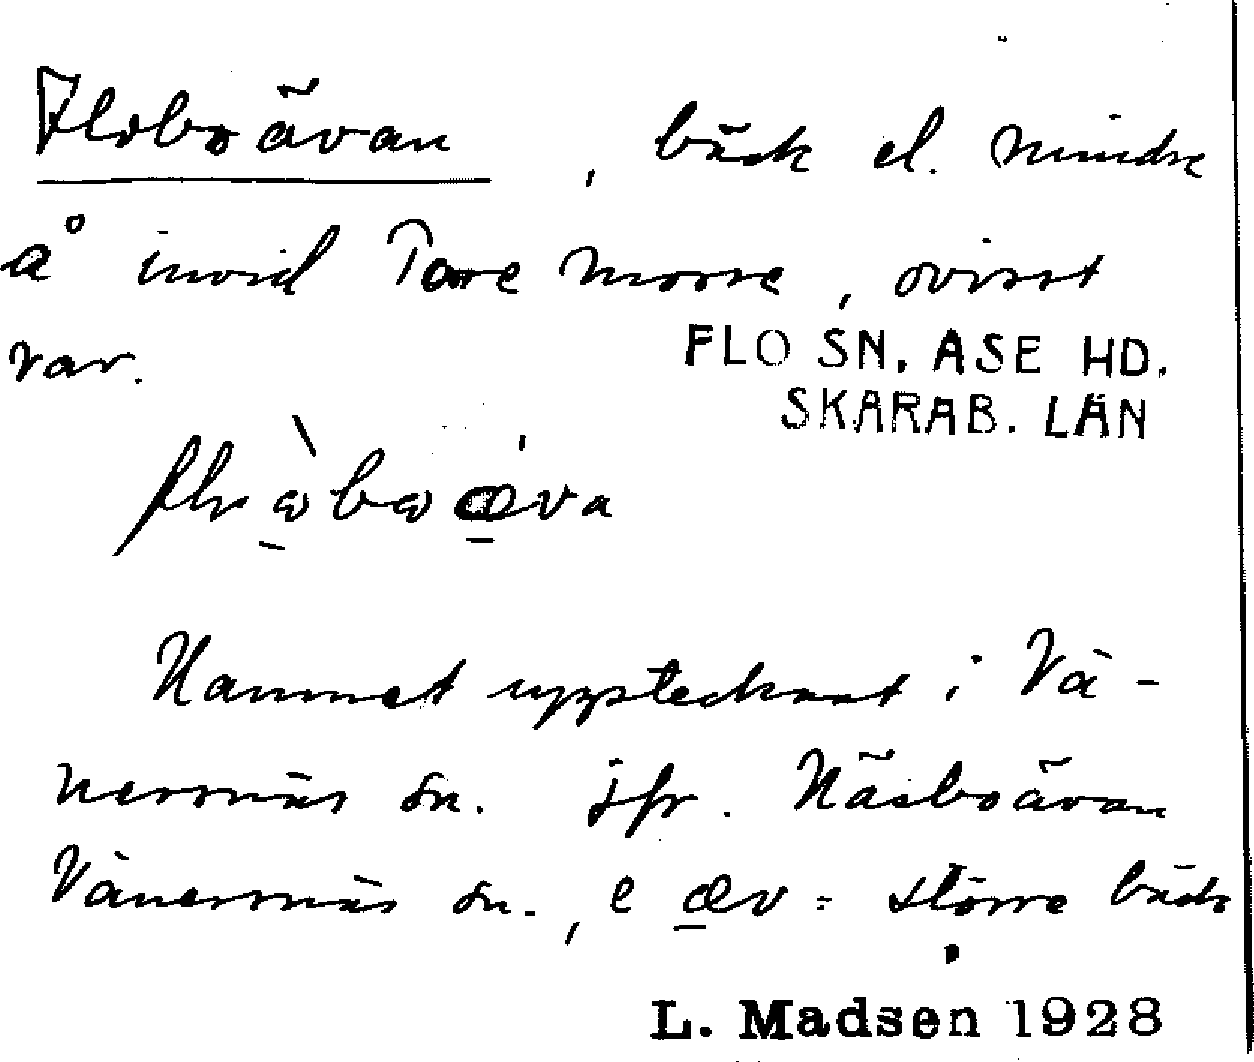 Floboävan, bäck el. mindre
å invid Tore mosse, ovisst
var.
FLO SN. ÅSE HD.
SKARAB. LÄN
Namnet upptecknat i Vä-
nersnäs sn. jfr. Näsboävan
Vänersnäs sn., e æv = större bäck
L. Madsen 1928